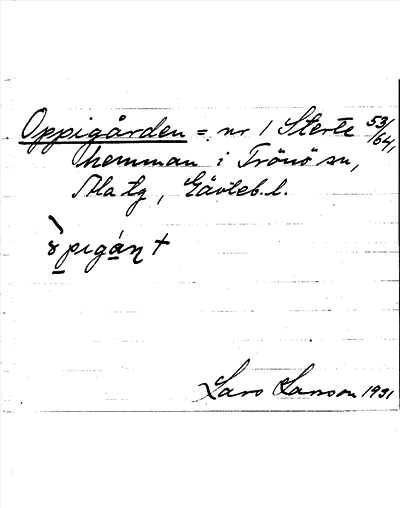 Oppigården = nr 1 Sterte 53/64,
hemman i Trönö sn,
Ala tg, Gävleb. l.
Lars Larsson 1931